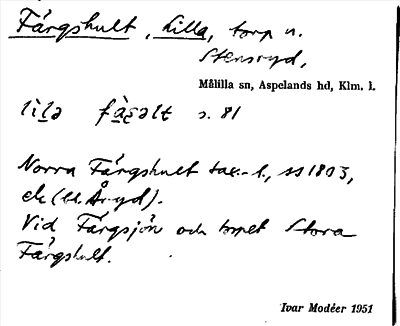 Färgshult, Lilla, torp u.
Stensryd,
Målilla sn, Aspelands hd, Klm. l.
s. 81
Norra Färgshult tax.-l., ss 1803,
ek (bl. Åryd).
Vid Färgsjön och torpet Stora
Färgshult.
Ivar Modéer 1951